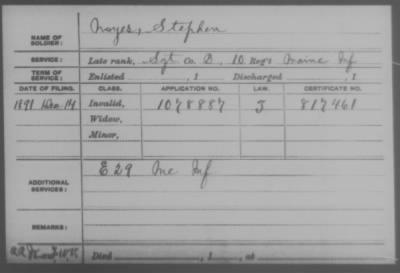 NAME OF SOLDIER: Noyes, Stephen
SERVICE: Late rank, Sgt Co. D, 10 Reg't Maine Inf
TERM OF SERVICE: Enlisted , 1 Discharged , 1
DATE OF FILING. CLASS. APPLICATION NO. LAW. CERTIFICATE NO.
1891 Dec 14 Invalid, 1078887 J 817461
Widow,
Minor,
ADDITIONAL SERVICES: E 29 Me Inf
REMARKS:
Died , 1 , at